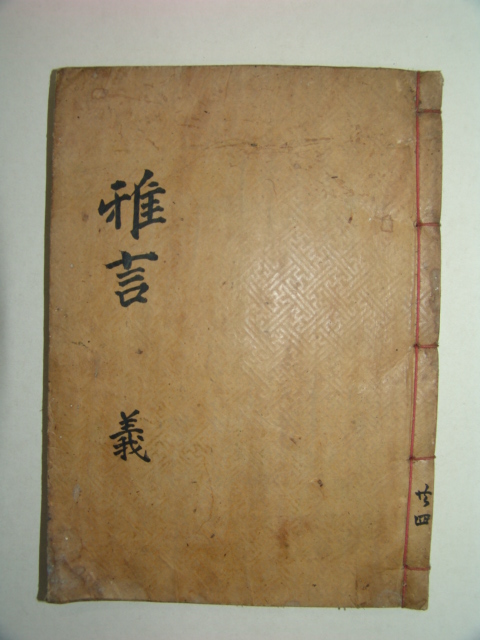 雅言
義
共四